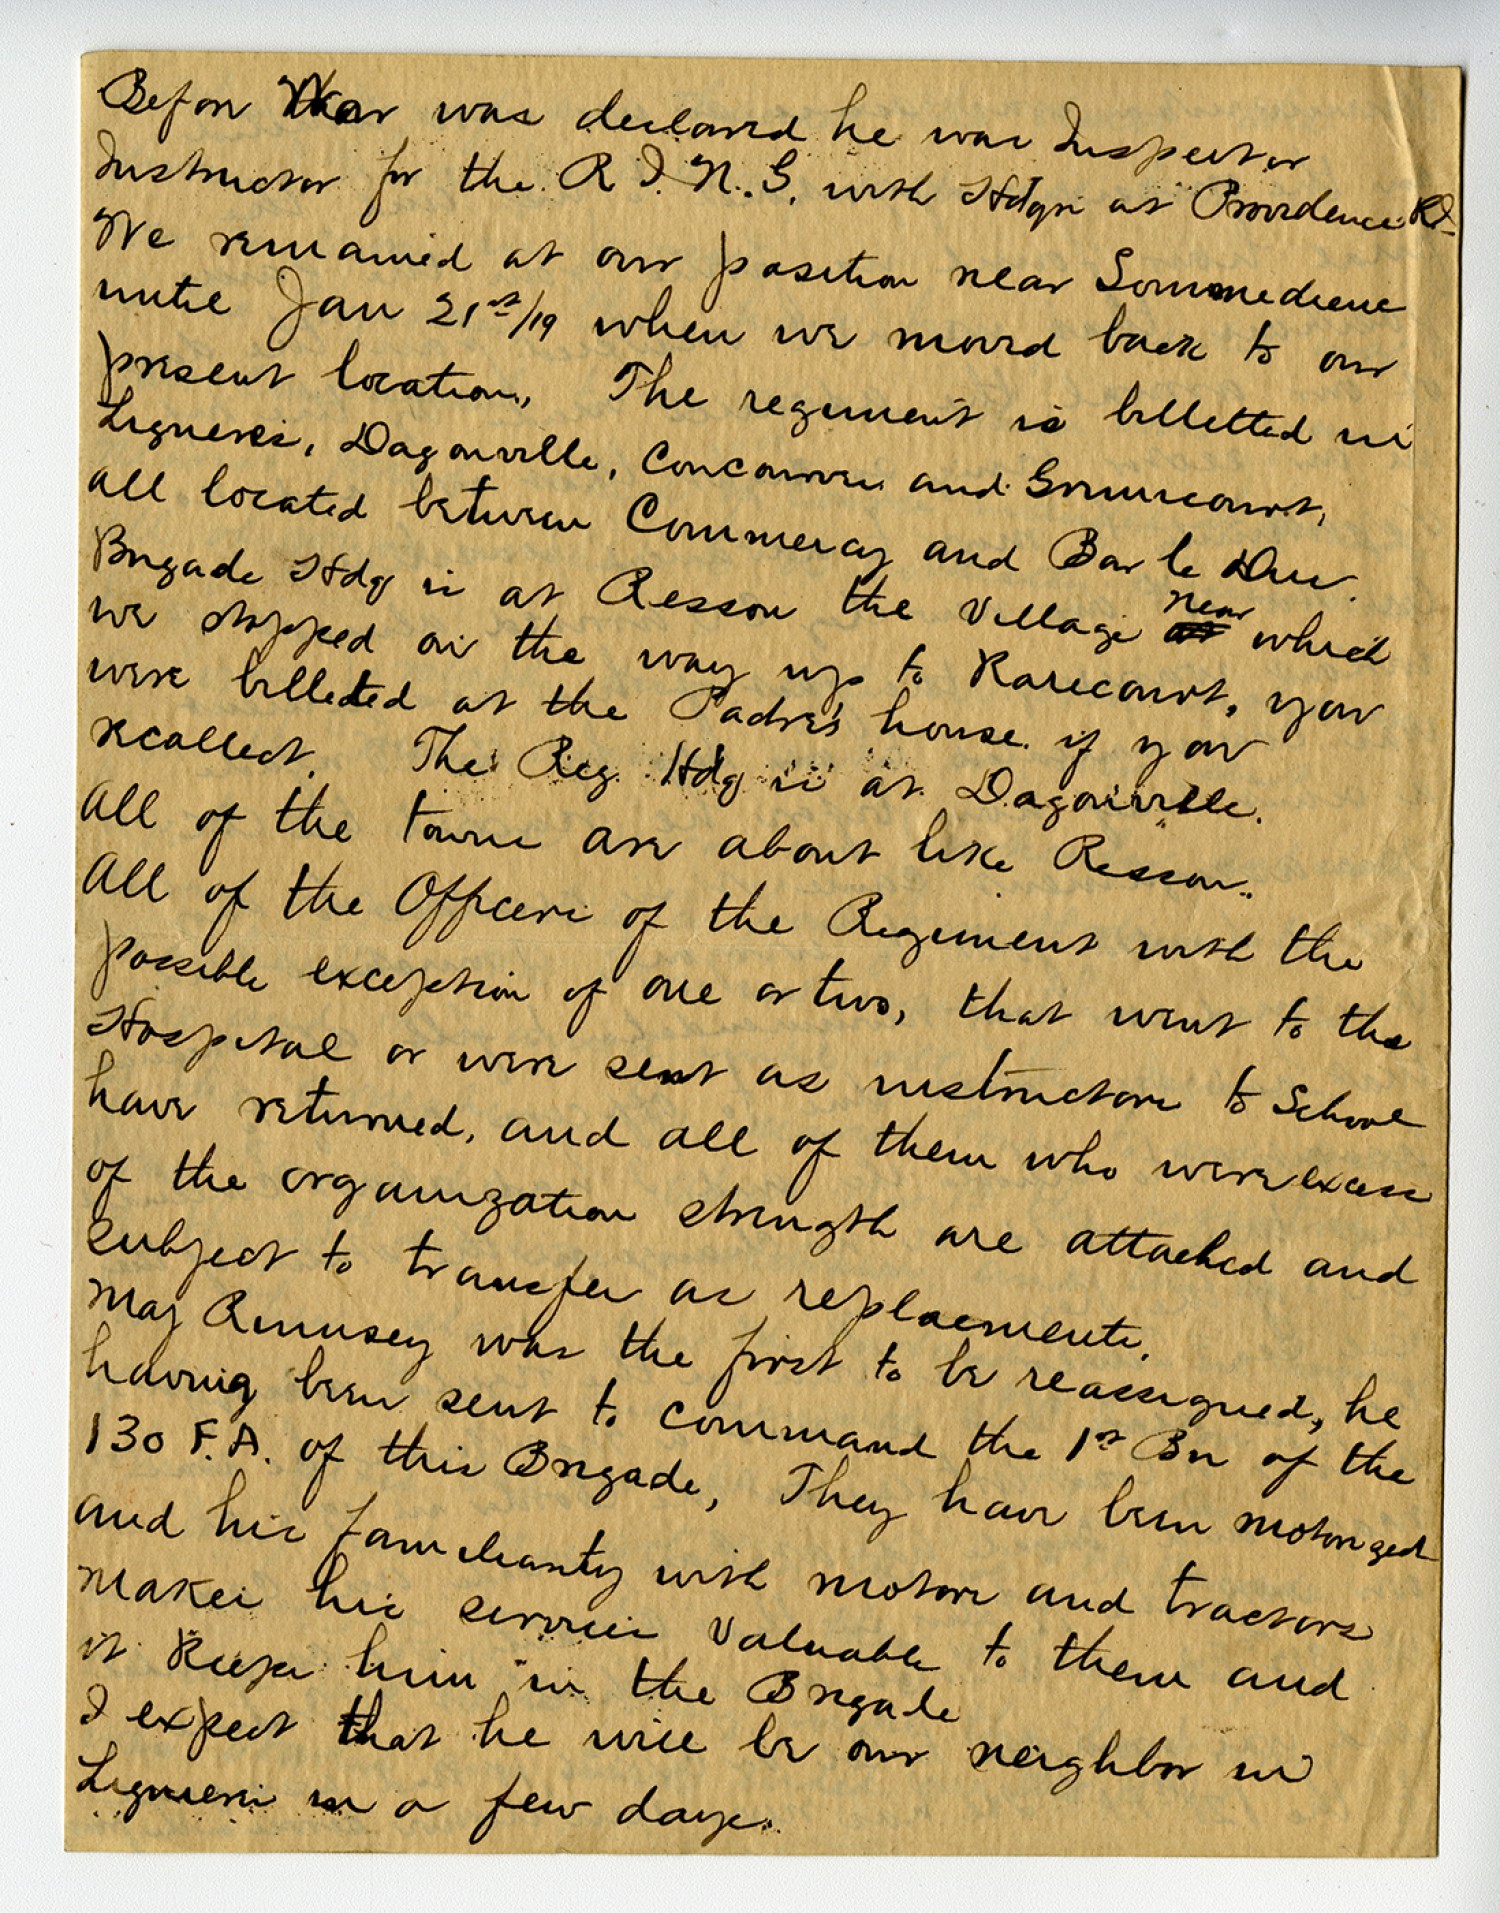 Before War was declared he was Inspector
Instructor for the R.I.N.G. with Hdqrs at Providence RI
We remained at our position near Sommedieue
until Jan 21st/19 when we moved back to our
present location. The regiment is billetted in
Ligneres, Dagonville, Concourren and Grimcourt,
all located between Commercy and Bar le Duc.
Brigade Hdq is at Resson the Village near which
we stopped on the way up to Rarecourt, you
were billeted at the Padre's house if you
recollect. The Reg. Hdq is at Dagonville.
All of the towns are about like Resson.
All of the Officers of the Regiment with the
possible exception of one or two, that went to the
Hospital or were sent as instructors to School
have returned, and all of them who were excess
of the organization strength are attached and
subject to transfer as replacements.
Maj Rumsey was the first to be reassigned, he
having been sent to command the 1st Bn of the
130 F.A. of this Brigade, They have been motorized
and his familiarity with motors and tractors
makes his services valuable to them and
it keeps him in the Brigade
I expect that he will be our neighbor in
Ligneres in a few days.